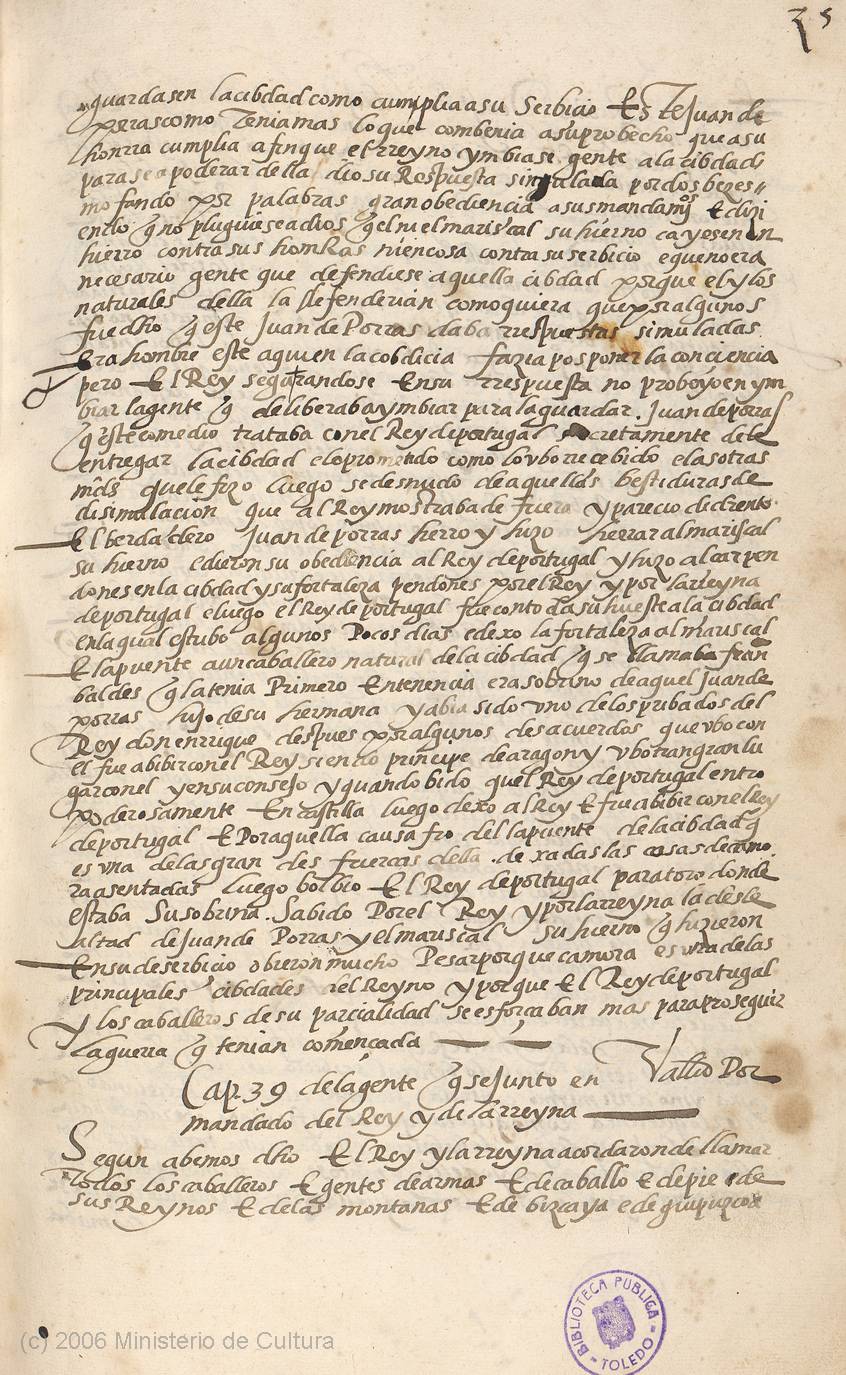 35
guardasen la cibdad como cumplia a su serbicio Este Juan de
porras como Tenia mas lo que combenia a su probecho que a su
honrra cumplia a fin que el rreyno ymbiase gente a la cibdad
para se apoderar della dio su Respuesta simulada por dos bezes
mofando por palabras gran obediencia a sus mandamos E dizi
endo q no pluguiese a dios q el ni el mariscal su hierno cayesen en
hierro contra sus honrras ni en cosa contra su serbicio e que no era
necesario gente que defendiese aquella cibdad porque el y los
naturales della la defenderian como quiera que por algunos
fue dho q este Juan de Porras daba rrespuestas simuladas.
Era hombre este a quien la cobdicia fazia posponer la conciencia
pero El Rey segurandose En su rrespuesta no proboyo en ym
biar la gente q deliberaba ymbiar para la guardar. Juan de porras
q en este comedio trataba con el Rey de portugal secretamente de le
entregar la cibdad e lo prometido como lo vbo rrecebido e las otras
mds que le fizo luego se desnudo de aquellas bestiduras de
disimulacion que al Rey mostraba de fuera y parecio de dentro
El berdadero Juan de porras herro y hizo herrar al mariscal
su hierno e dieron su obediencia al Rey de portugal y hizo alcar pen
dones en la cibdad y su fortaleza pendones por el Rey y por la rreyna
de portugal e luego el Rey de portugal fue con toda su hueste a la cibdad
en la qual estubo algunos Pocos dias e dexo la fortaleza al mariscal
E la puente a un caballero natural de la cibdad q se llamaba fran
baldes q la tenia Primero En tenencia era sobrino de aquel Juan de
porras hijo de su hermana y abia sido vno de los pribados del
Rey don enrique despues por algunos desacuerdos que vbo con
el fue a bibir con el Rey siendo principe de aragon y vbo tan gran lu
gar con el y en su consejo y quando bido quel Rey de portugal entro
poderosamente En castilla luego dexo al Rey E fue a bibir con el Rey
de portugal E Por aquella causa fio del la puente de la cibdad q
es vna de las grandes fuercas della. dexadas las cosas de camo
ra asentadas luego bolbio El Rey de portugal para toro donde
estaba Su sobrina. Sabido Por el Rey y por la rreyna la desle
altad de Juan de Porras y el mariscal su hierno q hizieron
En su deserbicio obieron mucho Pesar porque camora es vna de las
principales cibdades del Reyno y porque El Rey de portugal
y los caballeros de su parcialidad se esforcaban mas para proseguir
la guerra q tenian començada
Cap. 39 de la gente q se junto en Vallid Por
mandado del Rey y de la rreyna
Segun abemos dho El Rey y la rreyna acordaron de llamar
Todos los caballeros E gentes de armas E de caballo E de pie de
sus Reynos E de las montanas E de bizcaya e de guipuzcoa
BIBLIOTECA PUBLICA
TOLEDO
(c) 2006 Ministerio de Cultura